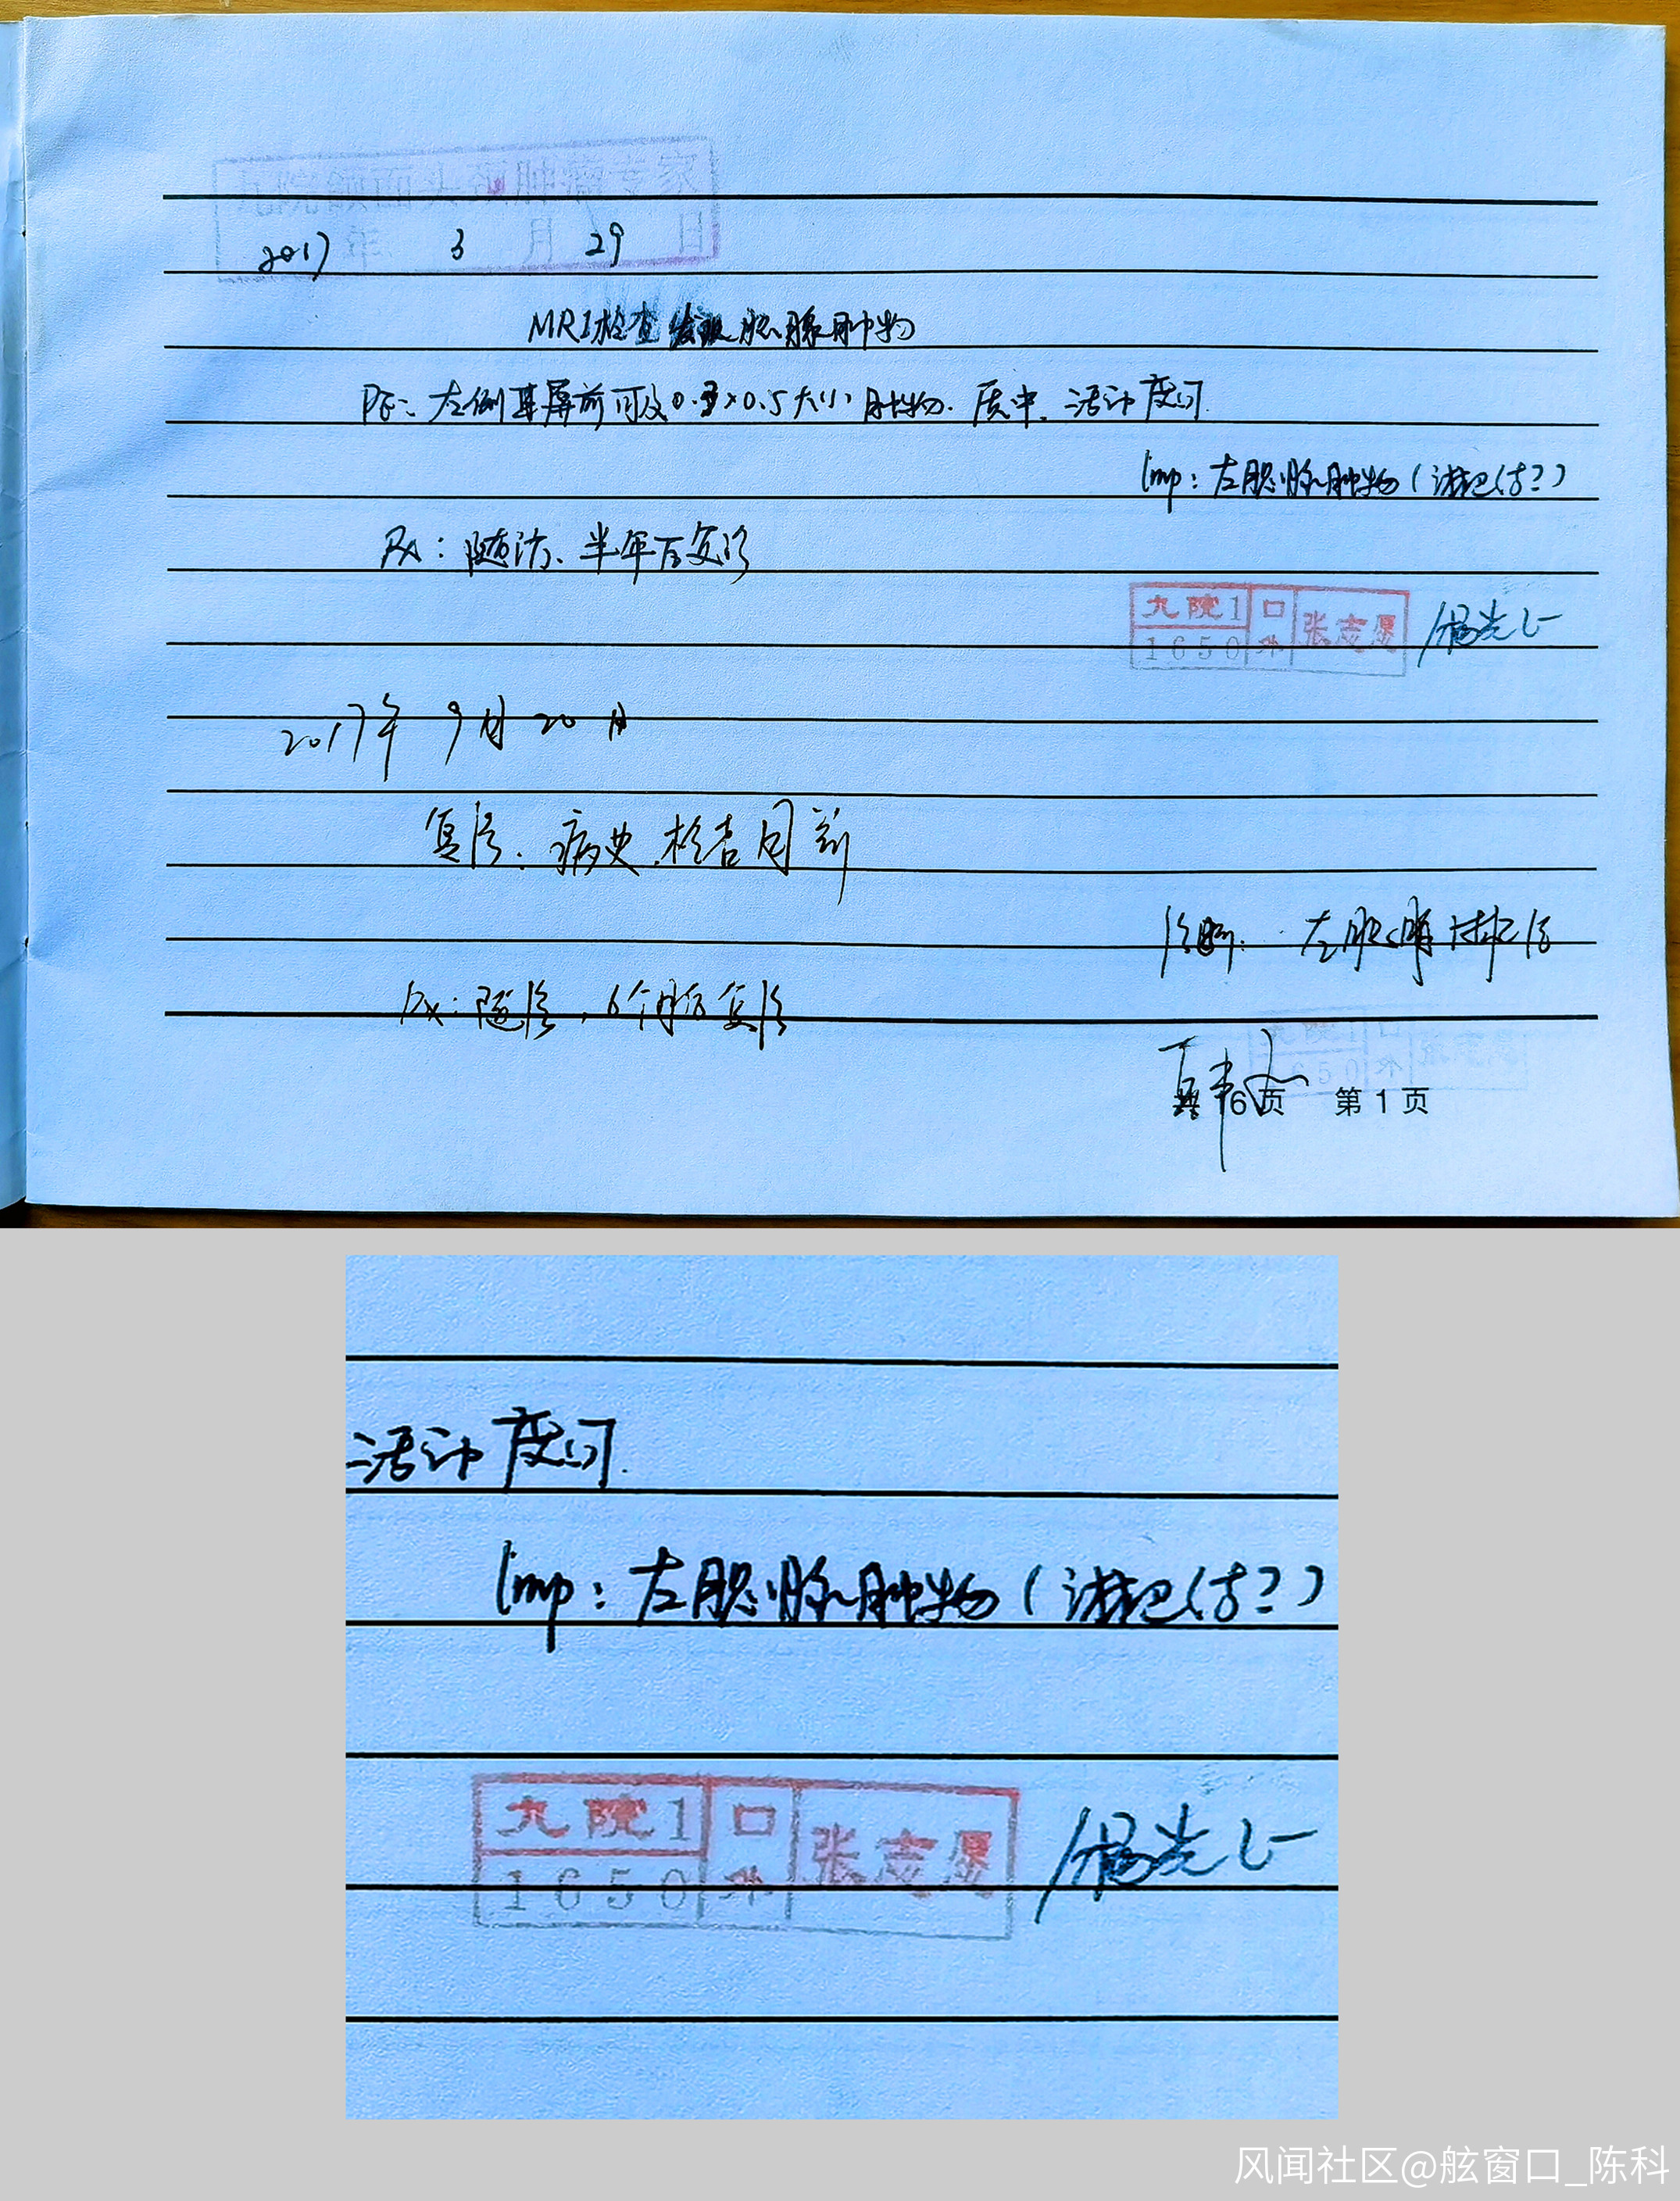 九院颌面头颈肿瘤专家
2017 年 3 月 29 日
MRI检查发现腮腺肿物
PE: 左侧耳屏前可及0.3×0.5大小肿物. 质中. 活动度可.
Imp: 左腮腺肿物(淋巴结?)
Rx: 随访、半年后复诊
九院1 口外 张志愿
1650
2017年 9月 20日
复诊. 病史. 检查同前
诊断: 左腮腺淋巴结
Rx: 随诊, 6个月后复诊
九院1 口外 张志愿
650
6页 第1页
活动度可.
Imp: 左腮腺肿物(淋巴结?)
九院1 口外 张志愿
1650
风闻社区@舷窗口_陈科